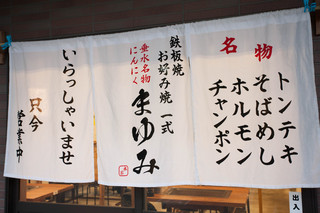 名物
トンテキ
そばめし
ホルモン
チャンポン
鉄板焼
お好み焼 一式
垂水名物
にんにく
まゆみ
いらっしゃいませ
只今
営業中
出入